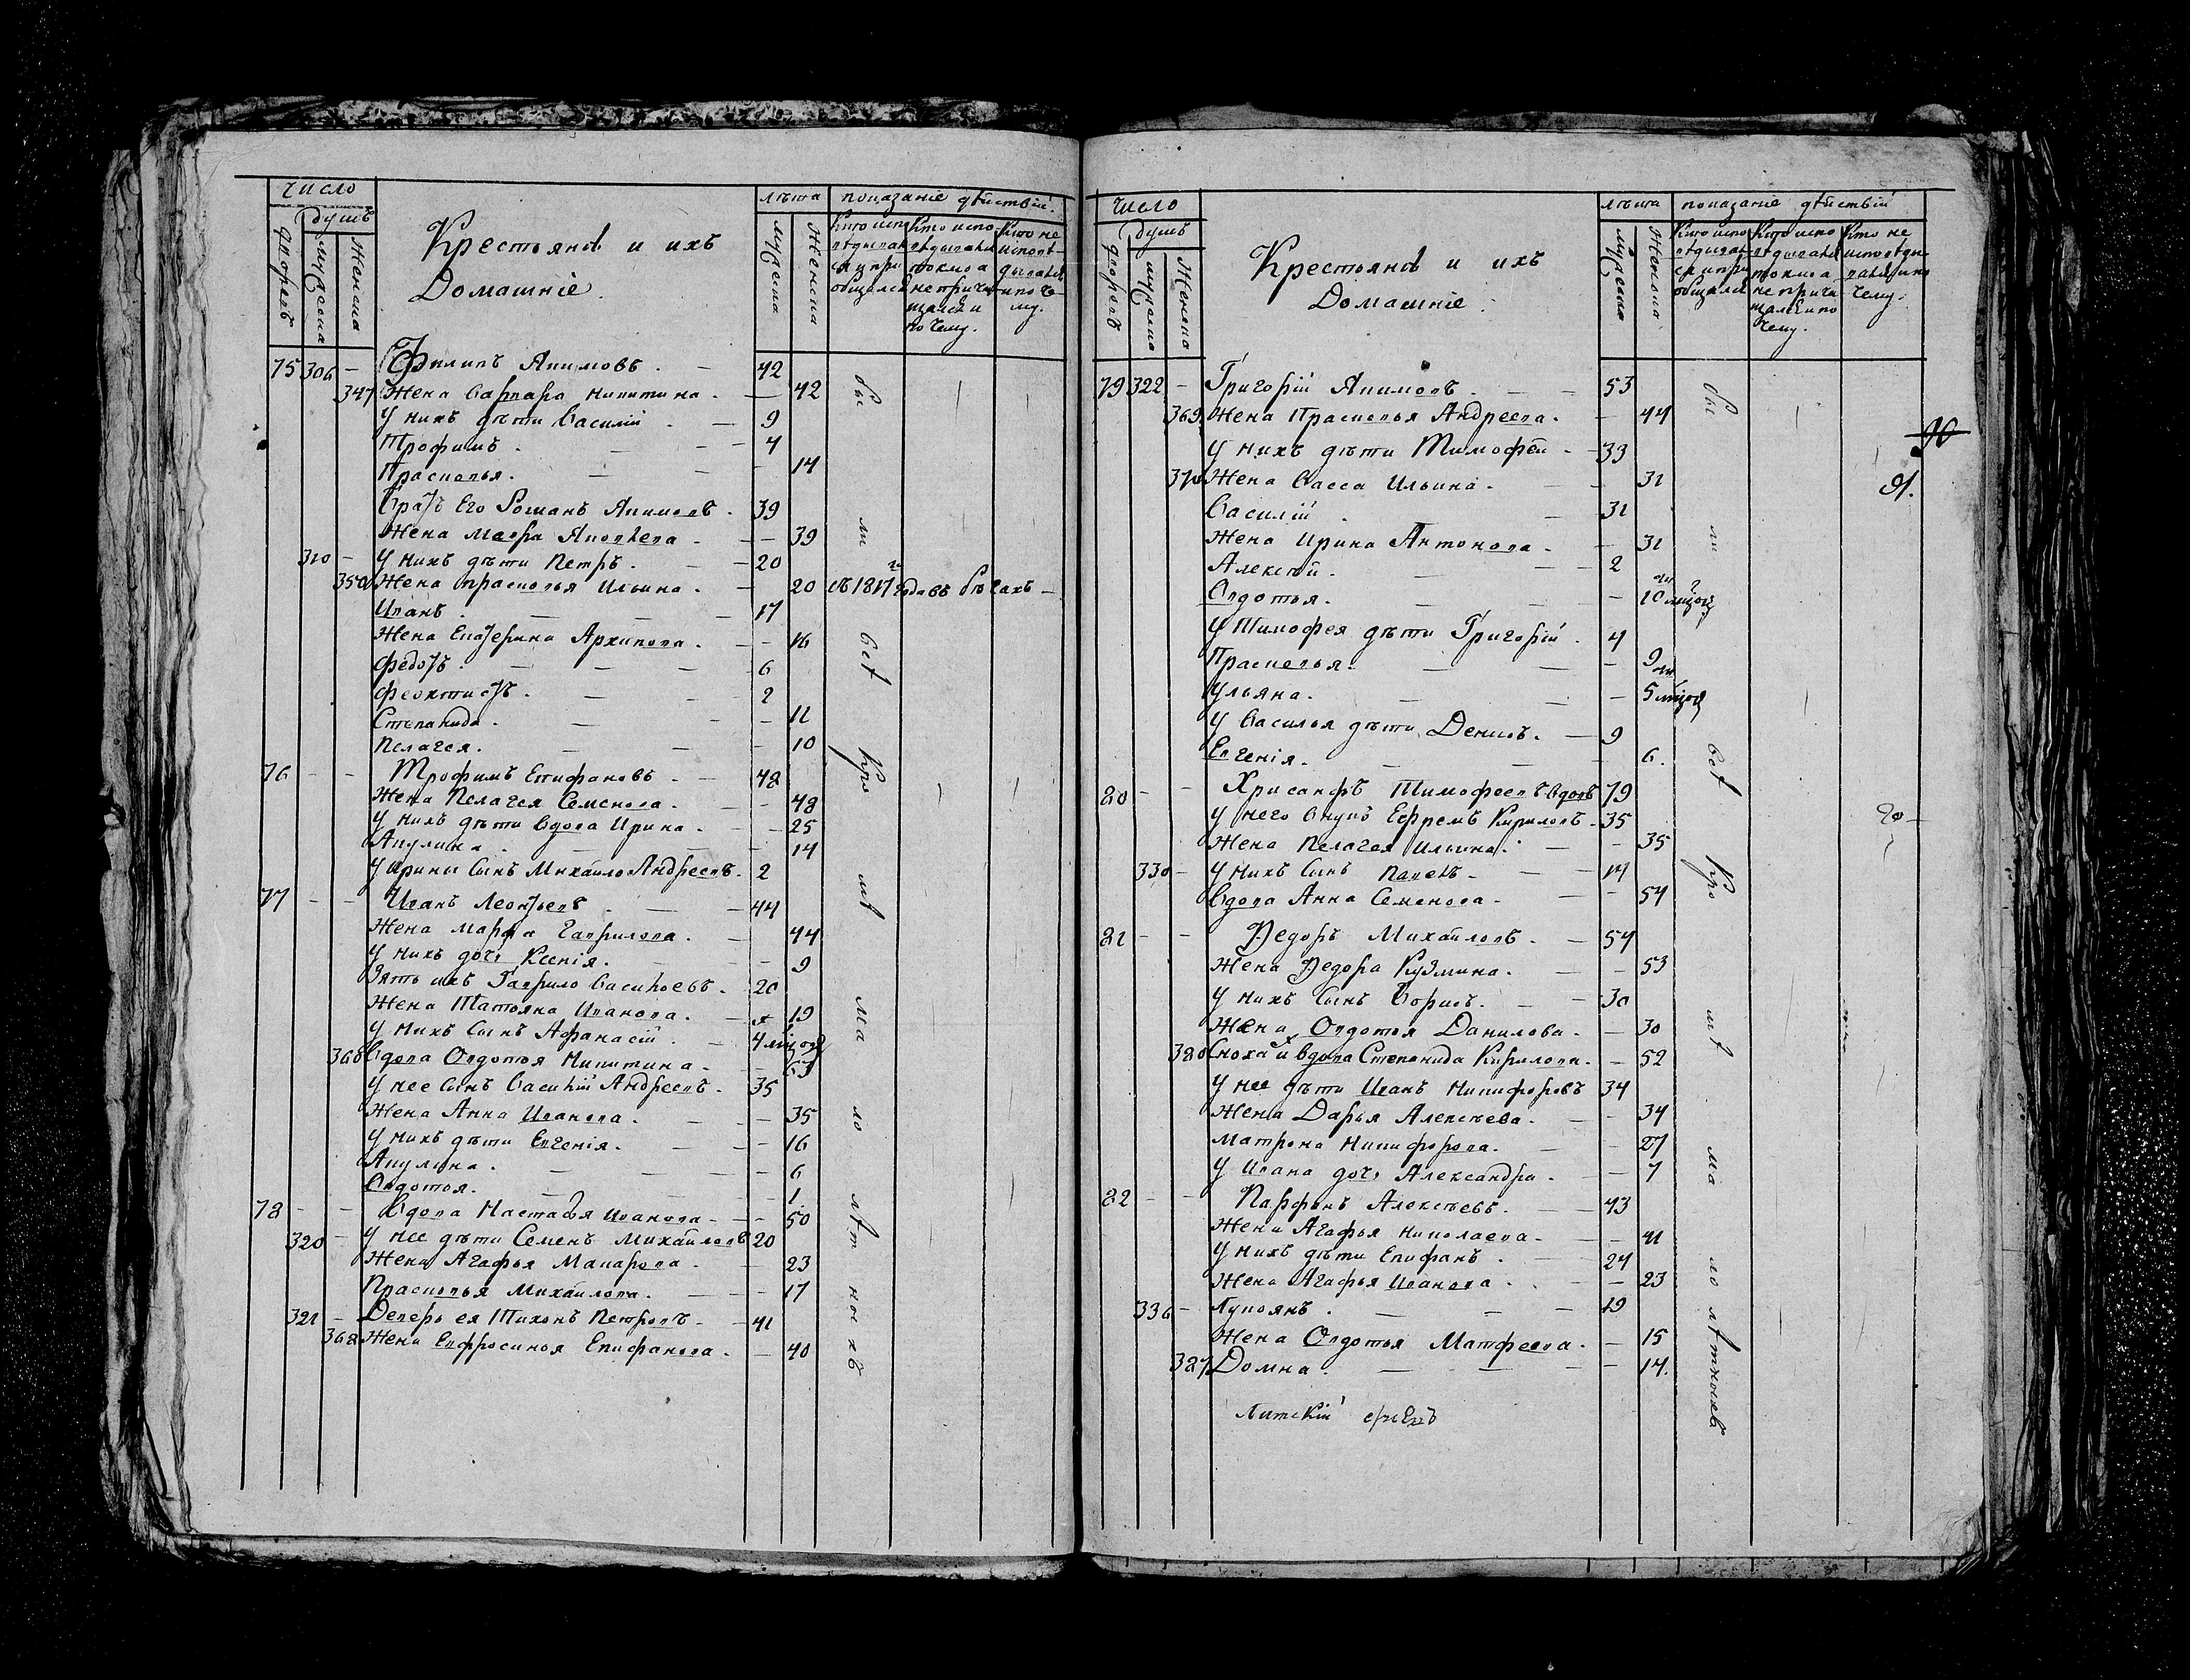 число
душъ
дворовъ
мужеска
женска
Крестьянѣ и ихъ
Домашніе.
лѣта
мужеска
женска
показаніе дѣйствій.
Кто испо
вѣдывал
ся и при
общался
Кто испо
вѣдывался
токмо а
не прича
щался и
по чему.
Кто не
исповѣ
дывался
и по че
му.
75 306 — Филипъ Акимовъ . — 42
347 Жена Варвара Никитина . — 42
У нихъ дѣти Василій . — 9
Трофимъ . — — 4
Прасковья . — — — 14
Братъ Его Романъ Акимовъ . 39
Жена Мавра Яковлева . — — 39
310 — У нихъ дѣти Петръ . — — 20
350 Жена Прасковья Ильина . — 20 съ 1817 года въ бѣгахъ —
Иванъ . — — — 17
Жена Екатерина Архипова . — — 16
Федотъ . — — — 6
Феоктистъ . — — — 2
Степанида . — — — 11
Пелагея . — — — 10
76 — — Трофимъ Епифановъ . — 48
Жена Пелагея Семенова . — — 48
У нихъ дѣти вдова Ирина . — — 25
Акулина . — — — 14
У Ирины сынъ Михайло Андреевъ . 2
77 — — Иванъ Леонтьевъ . — — 44
Жена Марфа Гаврилова . — 44
У нихъ дочь Ксенія . — — 9
Зять ихъ Гаврило Васильевъ . 20
Жена Татьяна Иванова . — 19
У нихъ сынъ Афанасій . — 4 мѣсяц
360 Вдова Овдотья Никитина . — 63
У нее сынъ Василій Андреевъ . 35
Жена Анна Иванова . — — 35
У нихъ дѣти Евгенія . — — 16
Акулина . — — — 6
Овдотья . — — — 1
78 — — Вдова Настасья Иванова — — 50
320 — У нее дѣти Семенъ Михайловъ 20
Жена Агафья Макарова . — 23
Прасковья Михайлова . — — 17
321 — Деверь ея Тихонъ Петровъ — — 41
368 Жена Евфросинья Епифанова . — 40
бы
ли
всѣ
кро
мѣ
ма
ло
лѣт
ны
хъ
число
душъ
дворовъ
мужеска
женска
Крестьянѣ и ихъ
Домашніе .
лѣта
мужеска
женска
показаніе дѣйствій
Кто испо
вѣдывал
ся и при
общался
Кто испо
вѣдывался
токмо а
не прича
щался и по
чему.
Кто не
исповѣды
вался и по
чему.
79 322 — Григорій Акимовъ . — — 53
369 Жена Прасковья Андреева . — 44
У нихъ дѣти Тимофей — — 33
370 Жена Васса Ильина . — — 31
Василій . — 31
Жена Ирина Антонова . — 31
Алексѣй . — — 2
Овдотья . — — — 10 мѣсяц
У Тимофея дѣти Григорій . 4
Прасковья . — — — 9
Ульяна . — — — 5 мѣсяц
У Василья дѣти Денисъ . — 9
Евгенія . — — — 6.
80 — — Хрисанфъ Тимофеевъ вдовъ 79
У него внукъ Ефремъ Кириловъ . 35
Жена Пелагея Ильина . — — 35
330 — У нихъ сынъ Павелъ — — 14
Вдова Анна Семенова — — 54
81 — — Федоръ Михайловъ . — 54
Жена Федора Кузмина . — — 53
У нихъ сынъ Борисъ . — — 30
Жена Овдотья Данилова . — 30
380 Сноха и вдова Степанида Кирилова . — 52
У нее дѣти Иванъ Никифоровъ 34
Жена Дарья Алексѣева . — 34
Матрона Никифорова . — — 27
У Ивана дочь Александра . — — 7
82 — — Парфенъ Алексѣевъ . — — 43
Жена Агафья Николаева — — 41
У нихъ дѣти Епифанъ . — 24
Жена Агафья Иванова . — — 23
336 — Лукоянъ . — — — 19
Жена Овдотья Матфеева . — 15
387 Домна . — — — 14.
бы
ли
всѣ
кро
мѣ
ма
ло
лѣтныхъ
90
91.